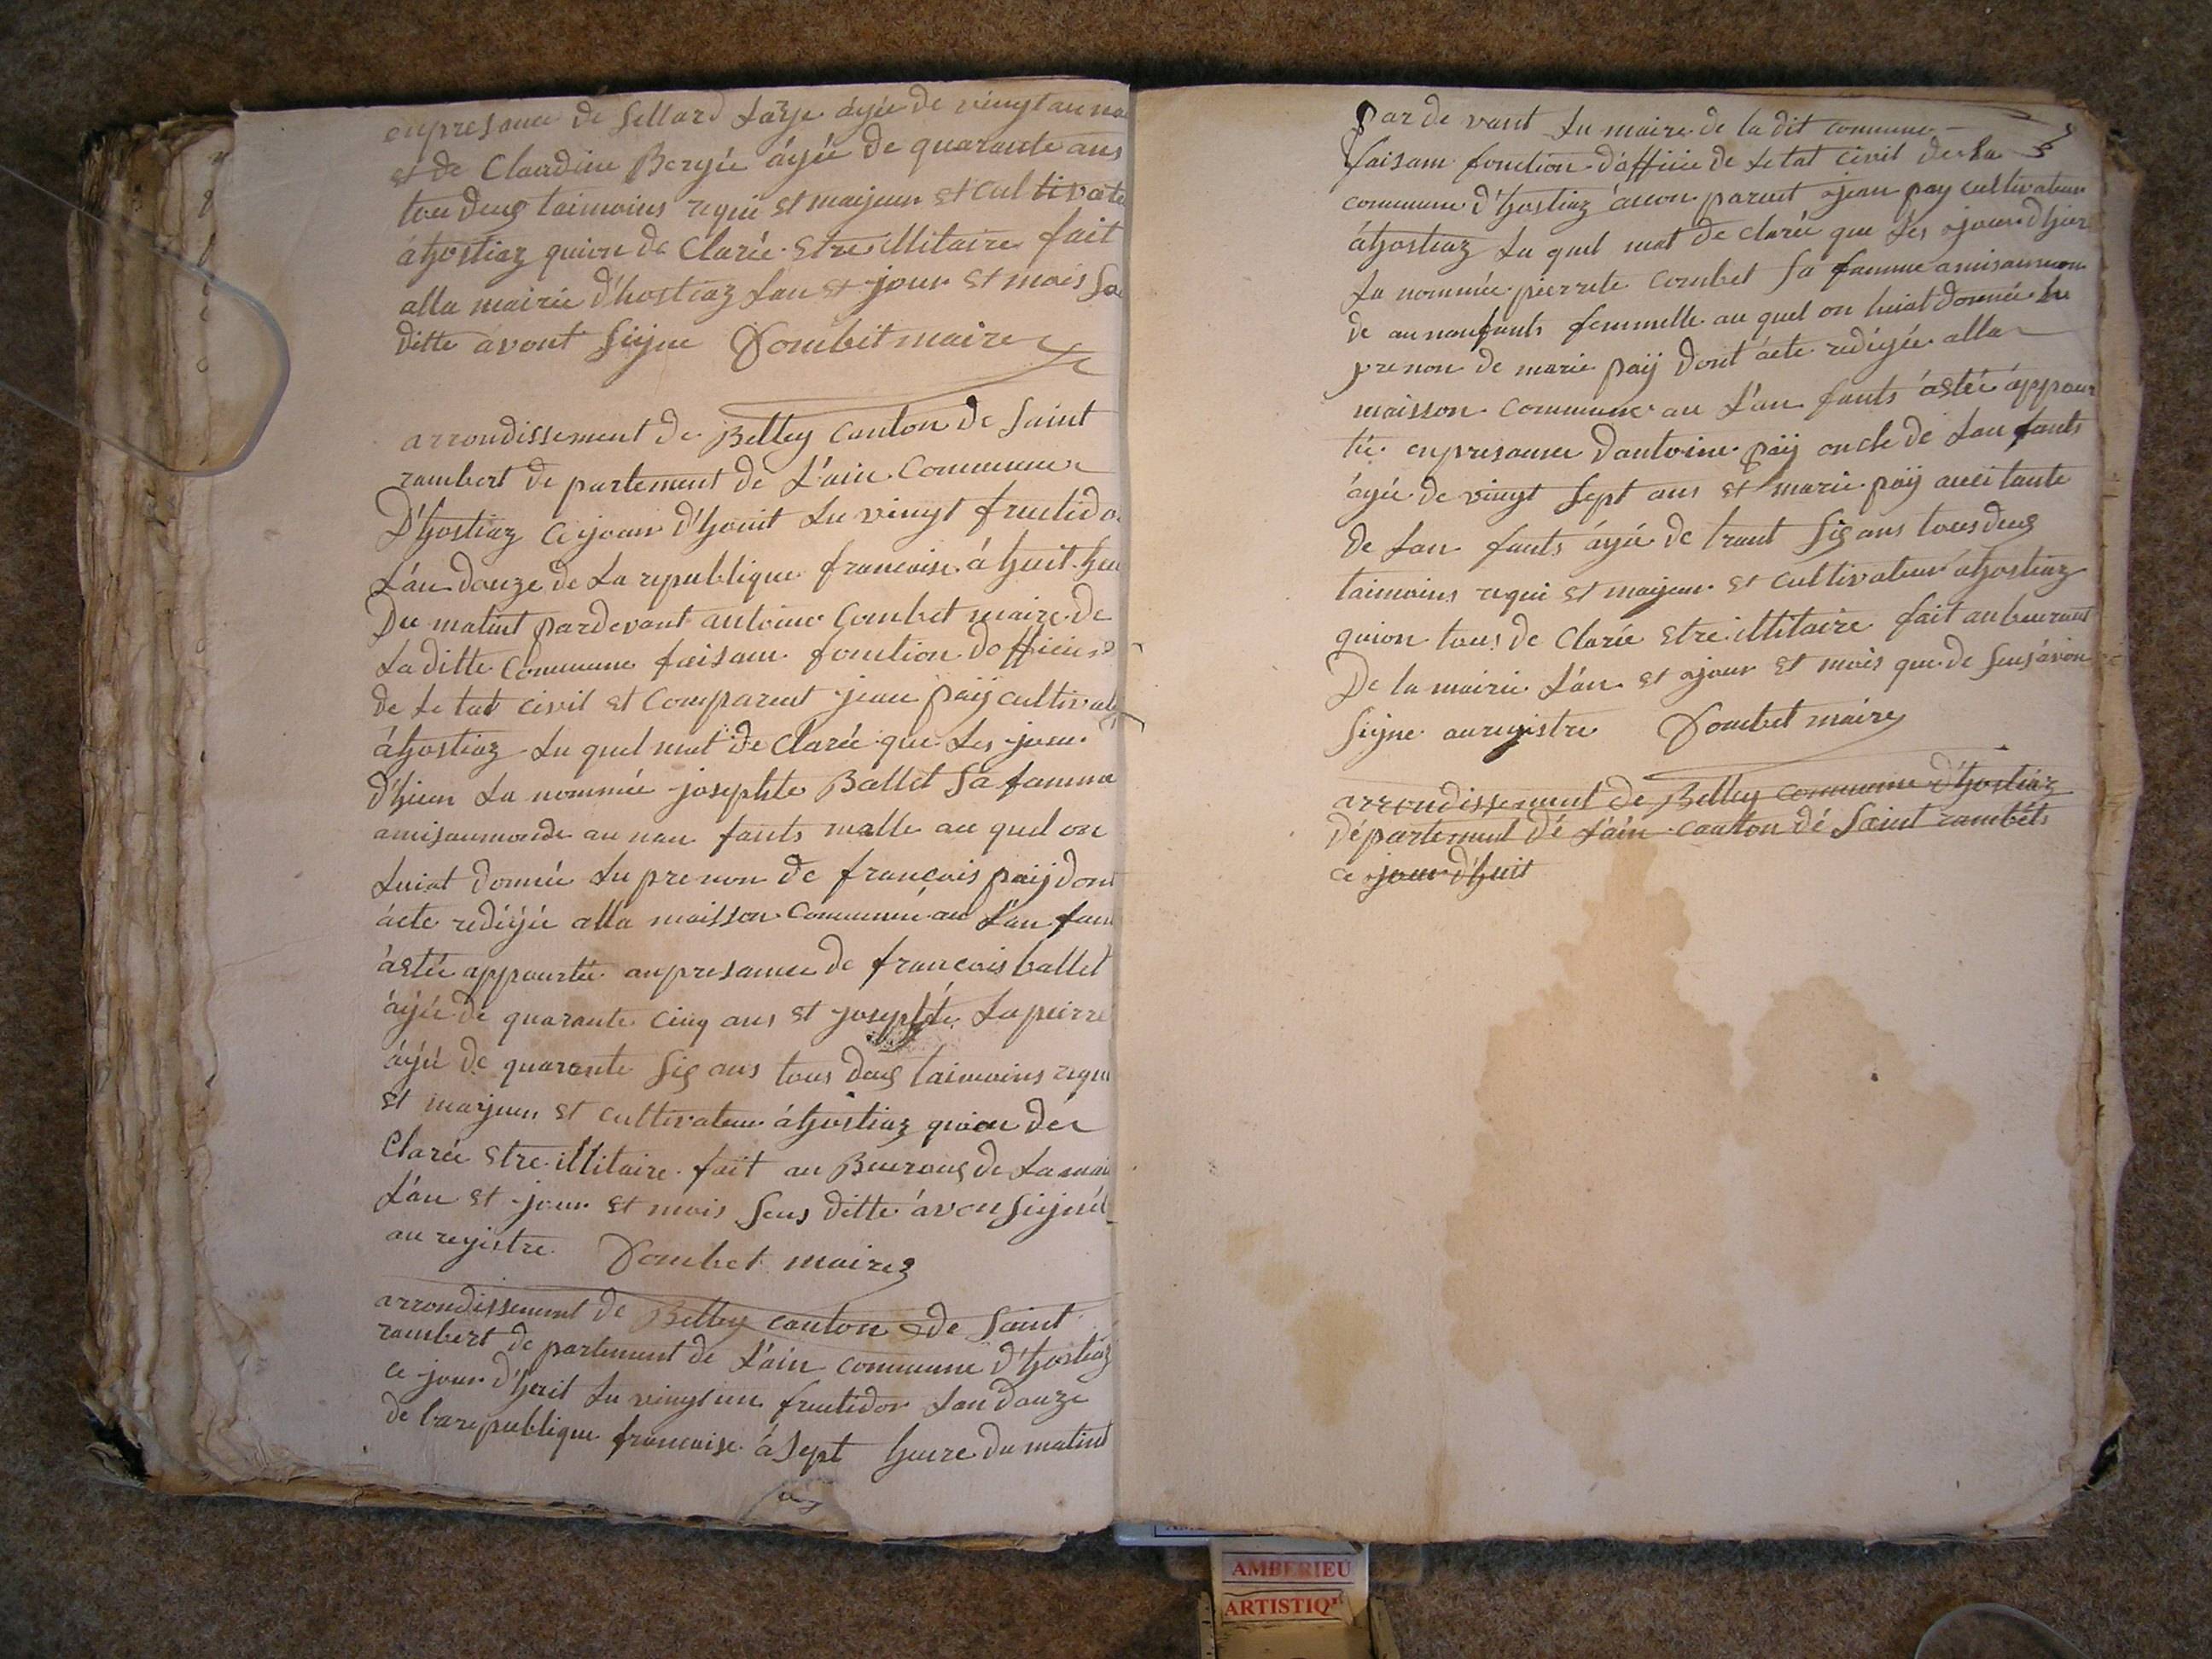 enpresance de Sellard Laze agée de vingt au
et de Claudine Bergée ágée de quarante ans
tou deus taimoins requi et maijeur et cultivate
áhostiaz quion de Clarée etre illitaire fait
alla mairie d'hostiaz Lan et jour et mois Su
ditte avont Signe Combet maire
arrondissement de Belley canton de Saint
rambert de partement de L'ain Commune
D'hostiaz Cejour d'houit Lu vingt fructido
L'an douze de La republique francoise á huit heu
Du matint pardevant antoine Combet maire de
Laditte Commune faisam fonction dofficie
de Letat civil et Comparent jean paÿ cultivate
áhostiaz Lu quel mat de clarée que Les jour
d'hier La nommée josephte Ballet Sa famme
amisaumonde au nan fants malle au quel on
Luiat donnée Lu prenon de francois paÿ dont
ácte redigée alla maisson Commune au L'an fan
ástée appourtée anpresance de francois ballet
ágée de quarante cinq ans et josephte Lapierre
ágée de quarante Sis ans tous deus taimoins requi
et marjeur et cultivateur áhostiaz quion de
Clarée etre illitaire fait au Beuraus de La mai
L'an et jour et mois Sus ditte ávon Signé
au registre Combet maire
arrondissement de Belley canton de Saint
rambert de partement de L'ain commune d'hostiaz
ce jour d'huit Lu vingt un fructidor Lan douze
de la republique francoise á Sept heure du matint
par de vant Lu maire de la dit commune
faisam fonction d'afficie de Letat civil de La
commune d'hostiaz ácon parut jean pay cultivateur
áhostiaz Lu quel mat de clarée que Les jour d'hier
La nommée pierrete Combet Sa famme amisaumon
de au nanfants femmelle au quel on luiat donnée Lu
prenon de marie paÿ dont ácte redigée alla
maisson commune au L'an fants ástée áppour
tée enpresance dantoine paÿ oncle de Lan fants
ágée de vingt Sept ans et marie paÿ auci tante
de Lan fants ágée de trant Sis ans tous deus
taimoins requi et majeur et cultivateur áhostiaz
quion tous de Clarée etre illitaire fait au beuraut
De la mairie L'an et jour et mois que de Sus ávon
Signe auregistre Combet maire
arrondissement de Belley commune d'hostiaz
département dé L'áin canton dé Saint rambéts
ce jour d'huit
AMBERIEU
ARTISTIQ